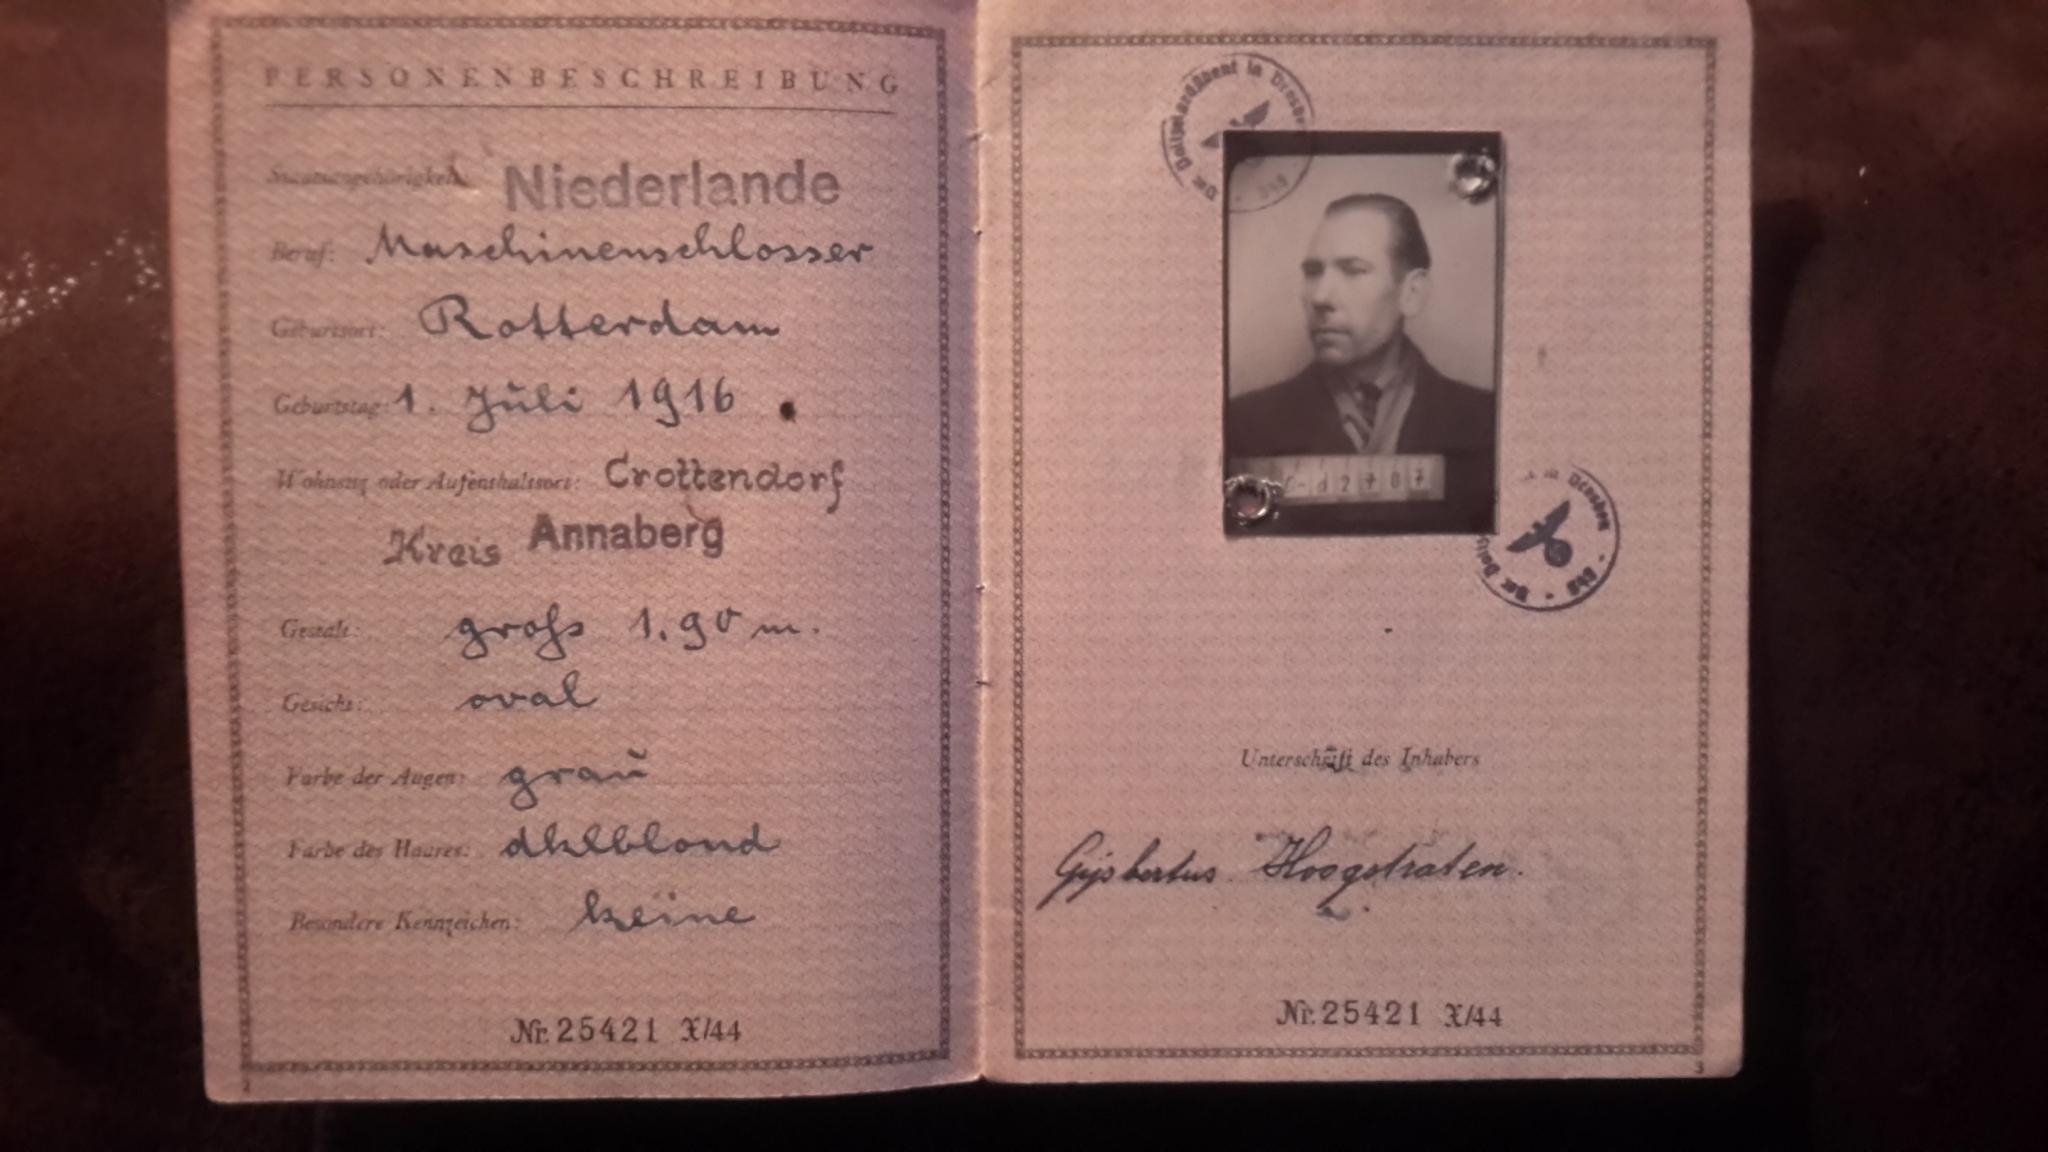 PERSONENBESCHREIBUNG
Staatsangehörigkeit: Niederlande
Beruf: Maschinenschlosser
Geburtsort: Rotterdam
Geburtstag: 1. Juli 1916
Wohnsitz oder Aufenthaltsort: Crottendorf
Kreis Annaberg
Gestalt: groß 1.90 m.
Gesicht: oval
Farbe der Augen: grau
Farbe des Haares: dklblond
Besondere Kennzeichen: keine
Nr. 25421 X/44
2
in Dresden
d2707
in Dresden
Unterschrift des Inhabers
Gijsbertus Hoogstraten.
Nr. 25421 X/44
3